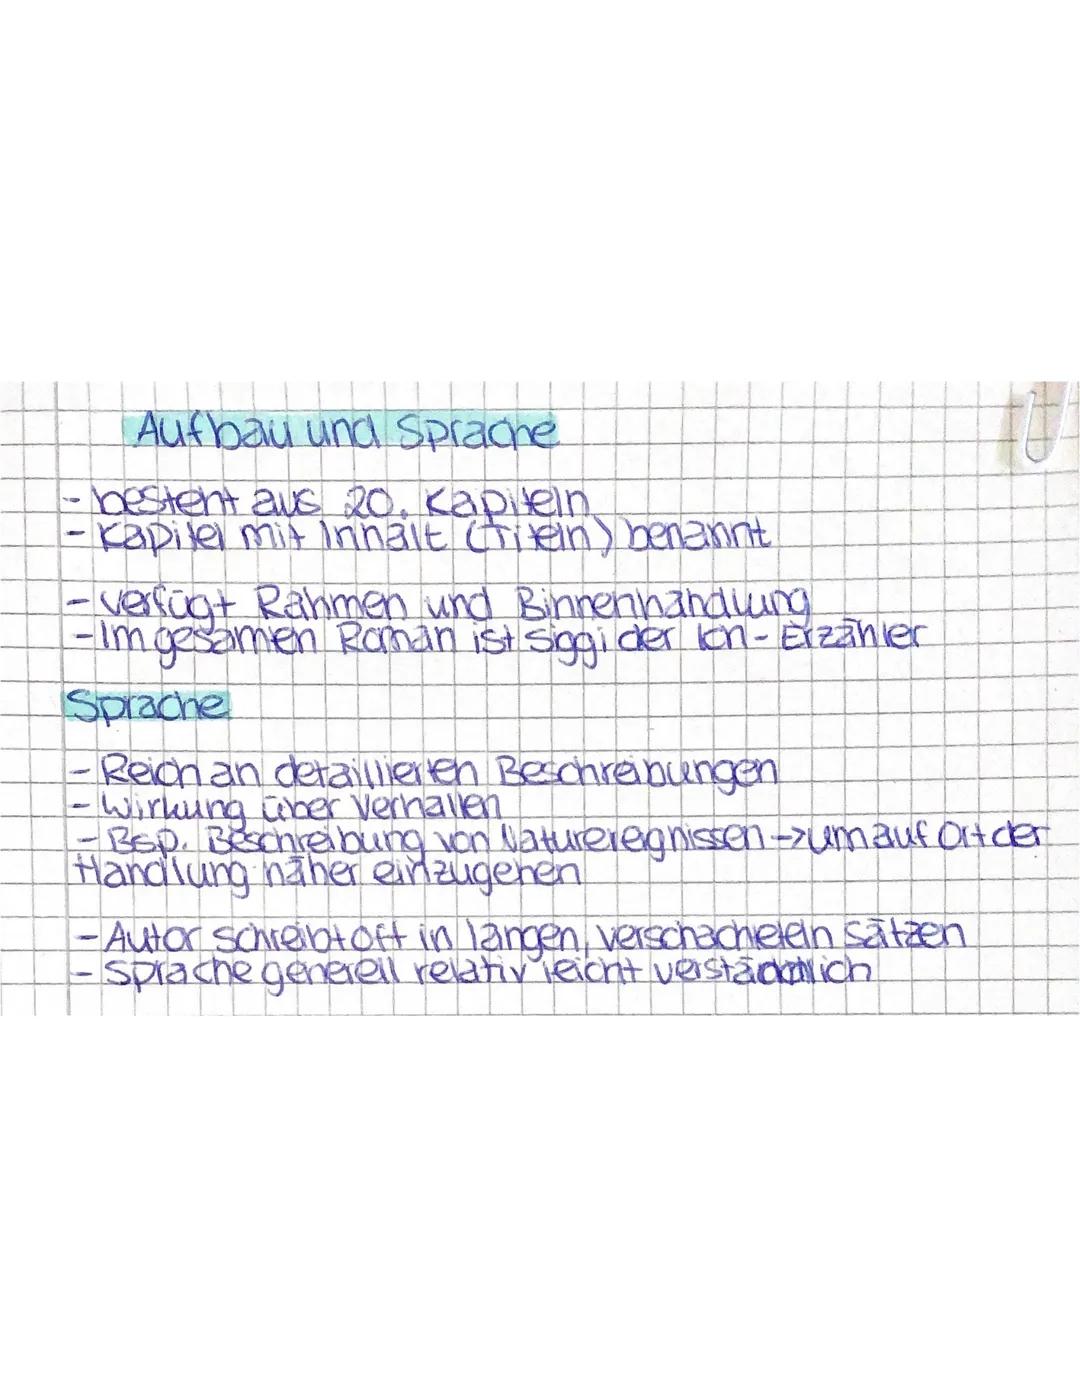 Aufbau und Sprache
- besteht aus 20. Kapiteln
- Kapitel mit Innhalt (Titeln) benannt
- verfügt Rahmen und Binnenhandlung
- Im gesamen Roman ist Siggi der Ich-Erzähler
Sprache
- Reich an detaillierten Beschreibungen
- Wirkung über Verhalten
- Bsp. Beschreibung von Naturereignissen → um auf Ort der
Handlung näher einzugehen
- Autor schreibt oft in langen, verschacheteln Sätzen
- Sprache generell relativ leicht verständlich